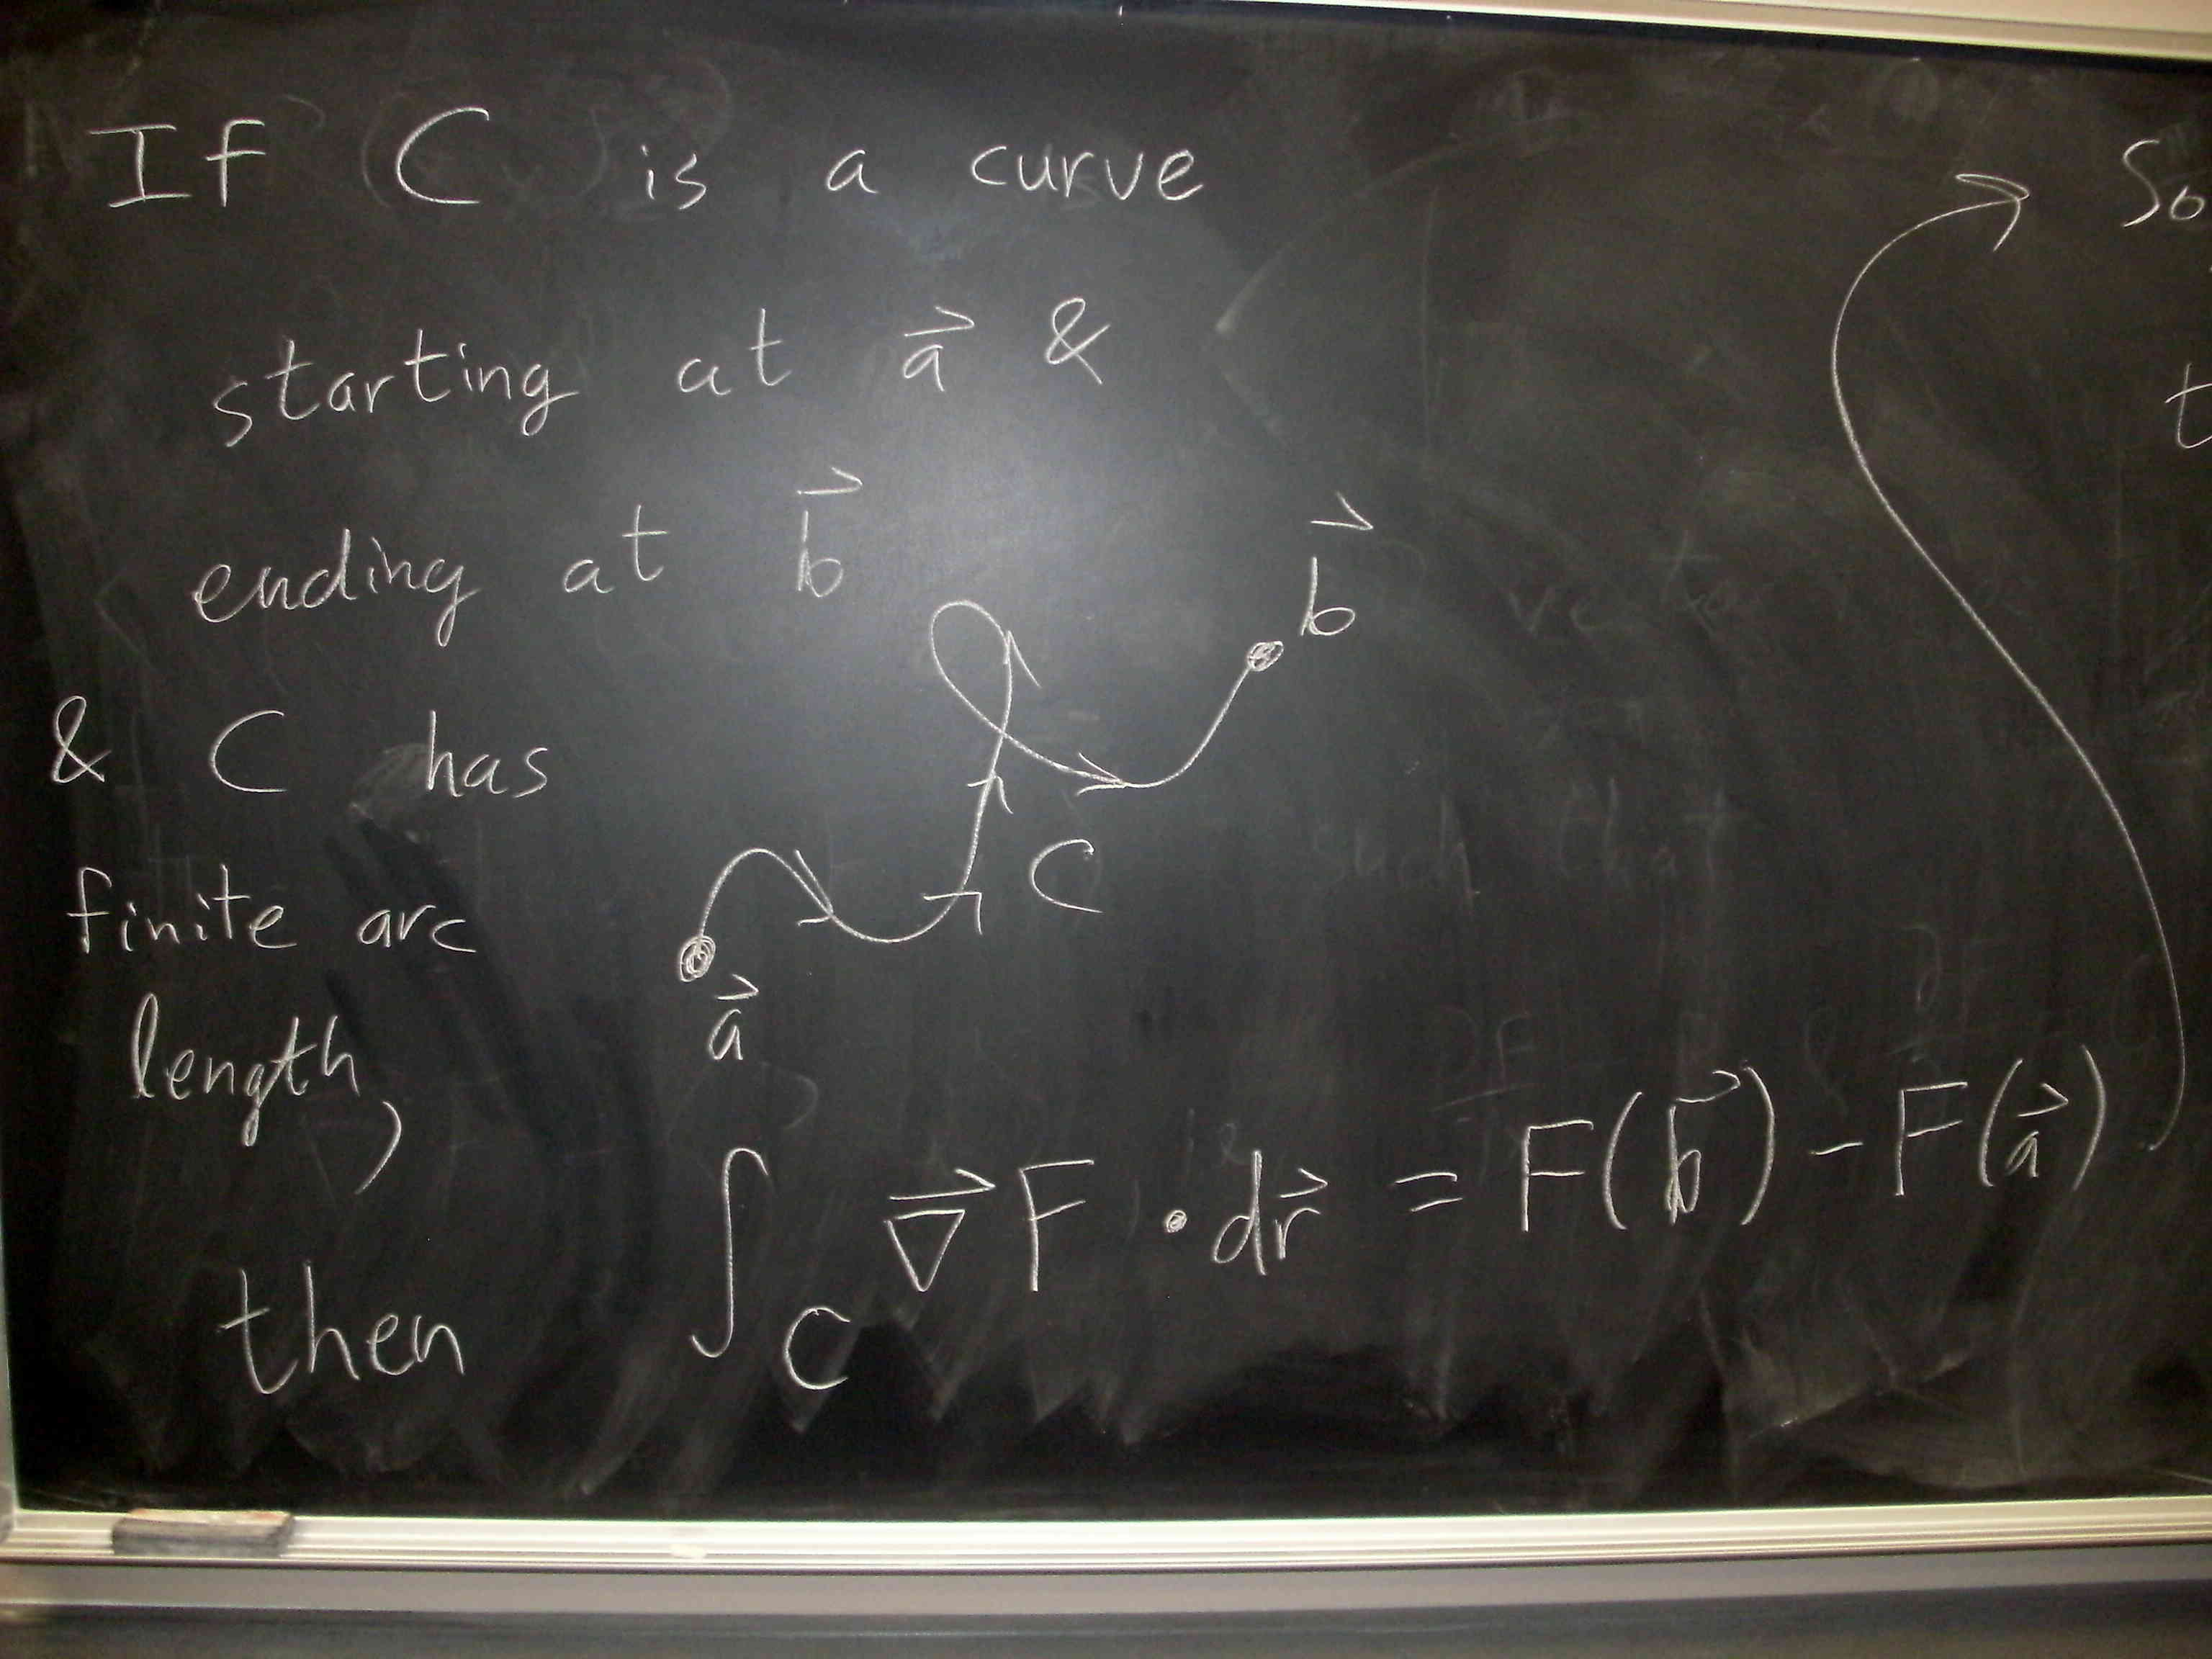 If C is a curve
starting at a⃗ &
ending at b⃗
& C has
finite arc
length,
then ∫_C ∇⃗F • dr⃗ = F(b⃗) - F(a⃗)
b⃗
C
a⃗
So